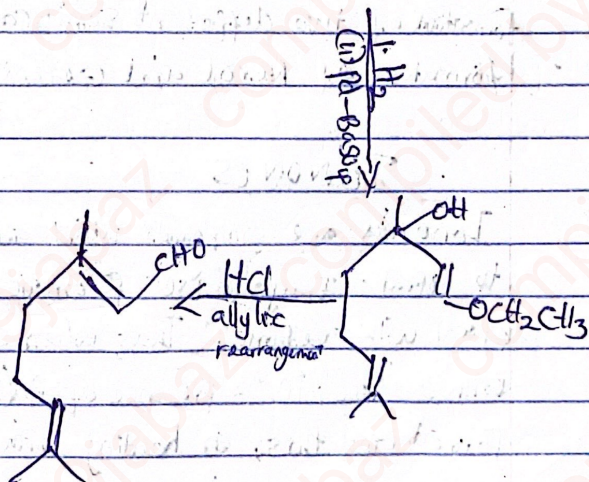 i. H2
(ii) Pd-BaSO4
OH
CHO
HCl
OCH2CH3
allylic
rearrangement